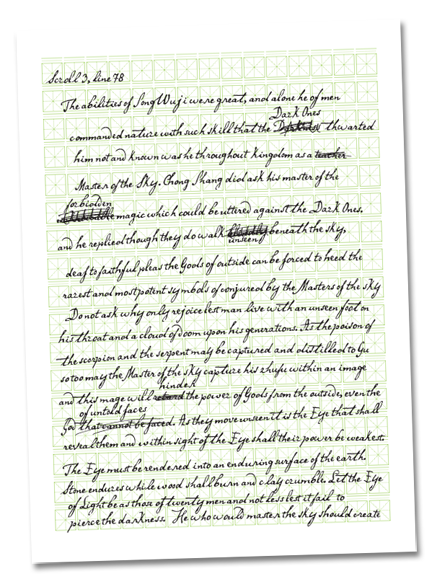 Scroll 3, line 78
The abilities of Song Wuji were great, and alone he of men
Dark Ones
commanded nature with such skill that the thwarted
him not and known was he throughout Kingdom as a teacher
Master of the Sky. Chong Shang did ask his master of the
forbidden
magic which could be uttered against the Dark Ones,
and he replied though they do walk blindly beneath the sky,
unseen
deaf to faithful pleas the Gods of outside can be forced to heed the
rarest and most potent symbols of conjured by the Masters of the Sky
Do not ask why only rejoice lest man live with an unseen foot on
his throat and a cloud of doom upon his generations. As the poison of
the scorpion and the serpent may be captured and distilled to Gu
so too may the Master of the Sky capture his zhufu within an image
hinder
and this mage will the power of Gods from the outside, even the
of untold faces
God that cannot be faced. As they move unseen it is the Eye that shall
reveal them and within sight of the Eye shall their power be weakest.
The Eye must be rendered into an enduring surface of the earth.
Stone endures while wood shall burn and clay crumble. Let the Eye
of Light be as those of twenty men and not less lest it fail to
pierce the darkness. He who would master the sky should create